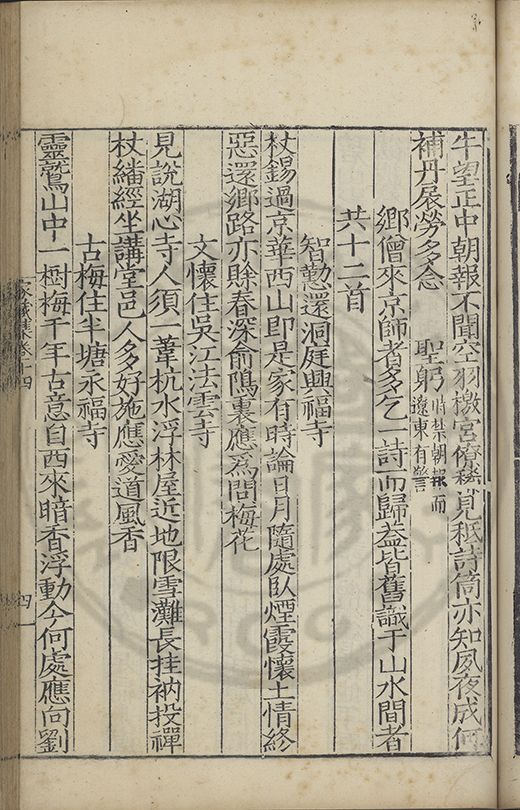 牛望正中朝報不聞空羽檄宮僚稀見秪詩筒亦知夙夜成何
補丹扆勞多念聖躬時禁朝報而遼東有警
鄉僧來京師者多乞一詩而歸葢皆舊識于山水間者
共十二首
智懃還洞庭興福寺
杖錫過京華西山即是家有時論日月隨處臥煙霞懷土情終
惡還鄉路亦賒春深俞隝裏應爲問梅花
文懷住吳江法雲寺
見說湖心寺人須一葦杭水浮林屋近地限雪灘長挂衲投禪
杖繙經坐講堂邑人多好施應愛道風香
古梅住半塘永福寺
靈鷲山中一樹梅千年古意自西來暗香浮動今何處應向劉
家藏集卷十四
四